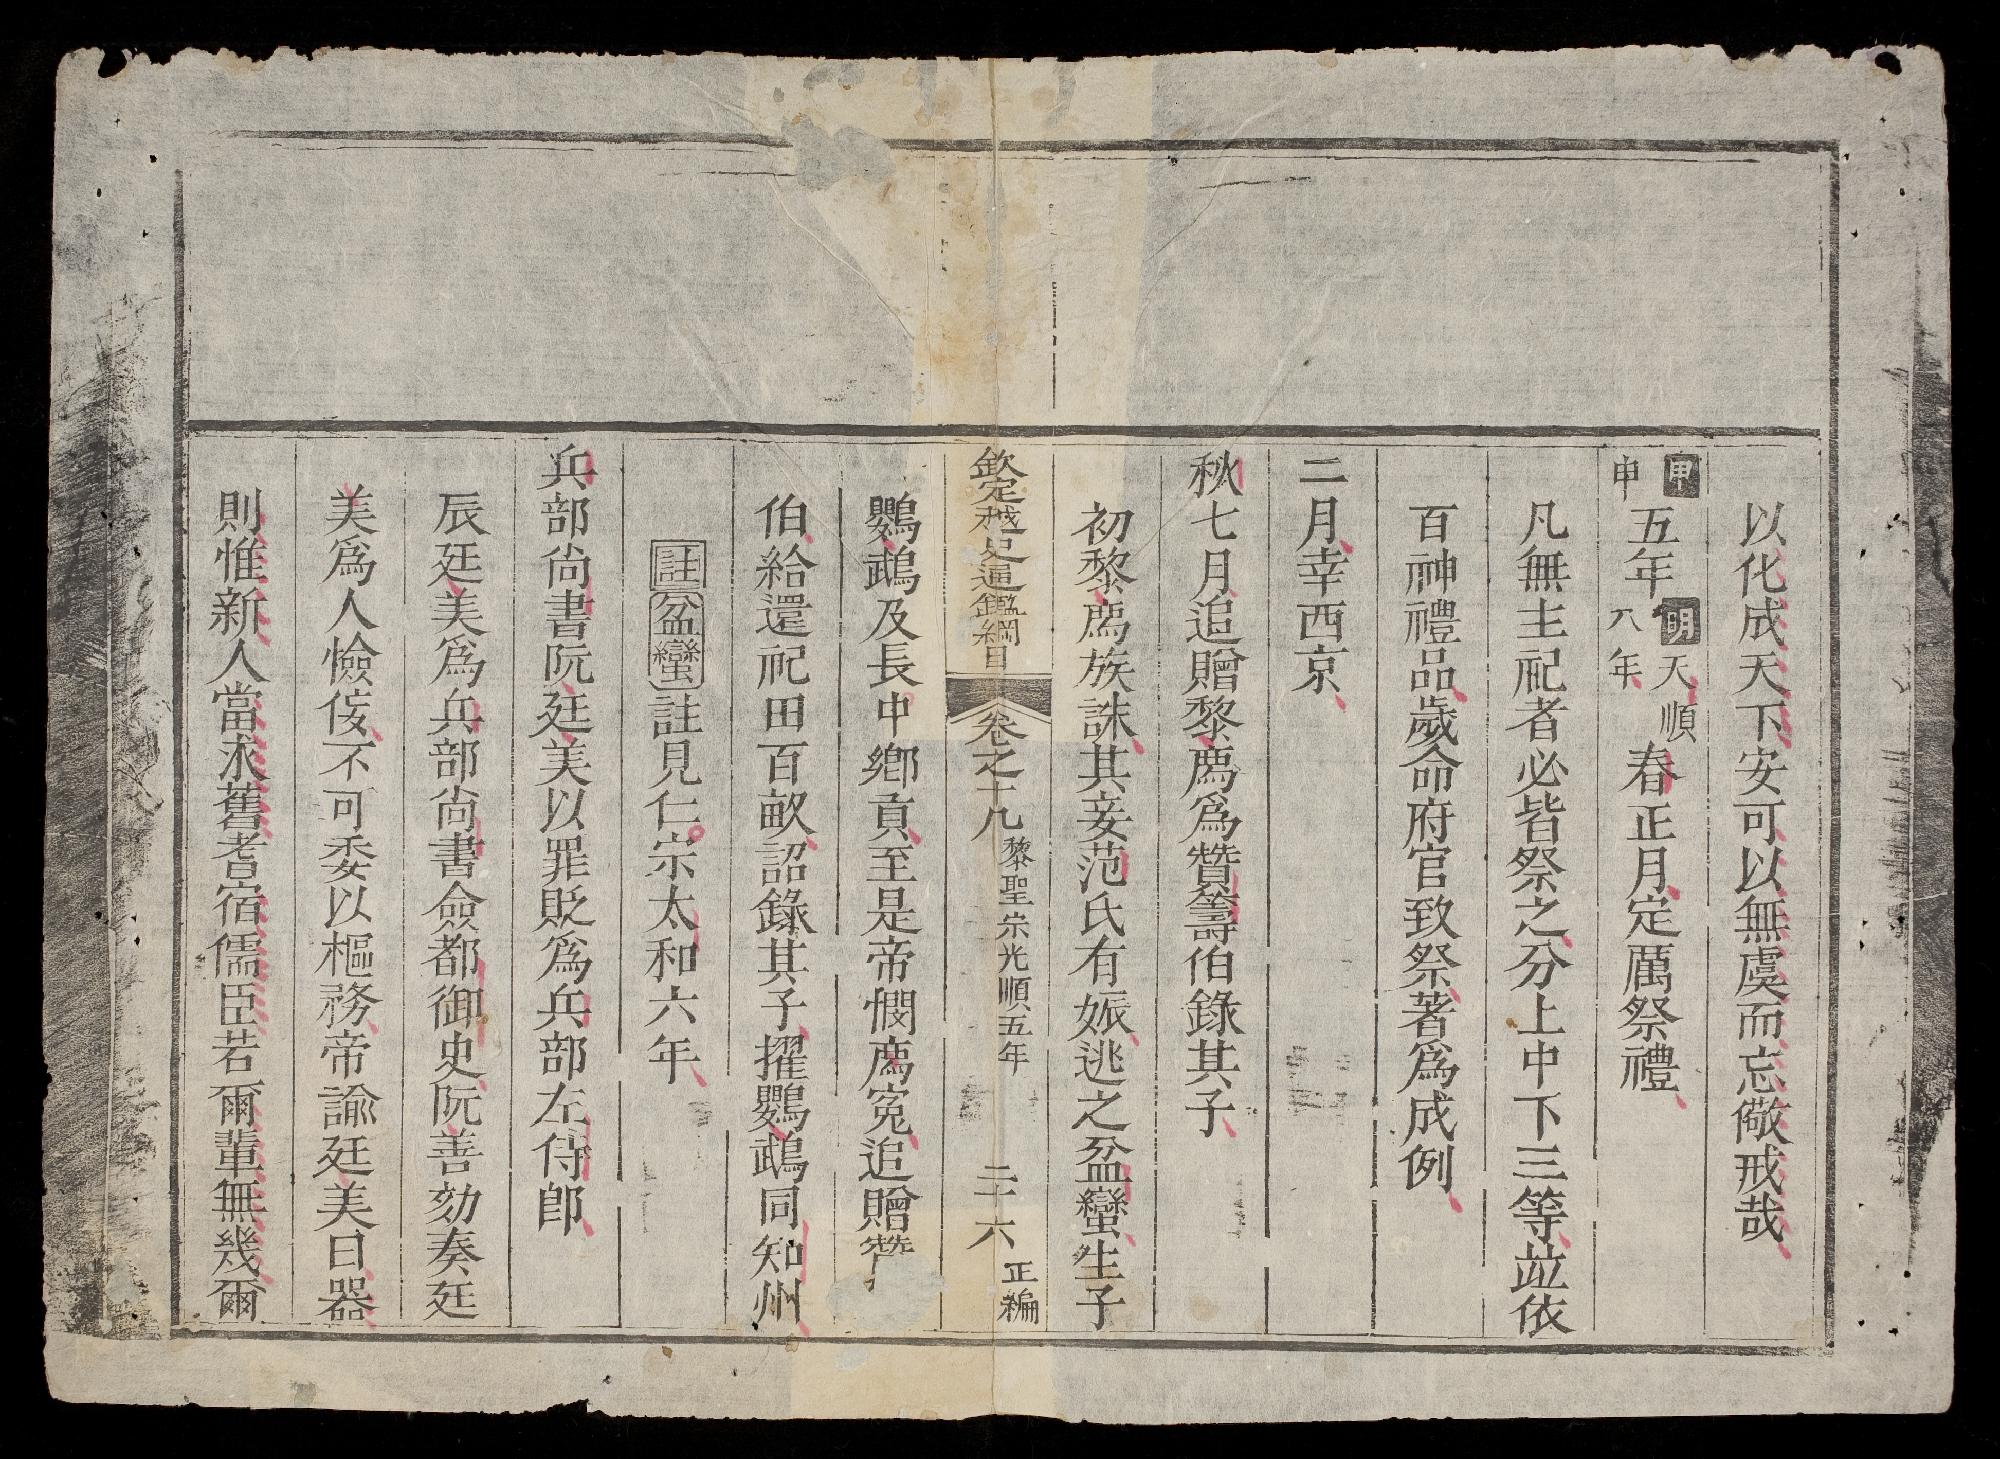 以化成天下安可以無虞而忘儆戒哉
甲申五年明天順八年春正月定厲祭禮
凡無主祀者必皆祭之分上中下三等竝依
百神禮品歲命府官致祭著爲成例
二月幸西京
秋七月追贈黎廌爲贊籌伯錄其子
初黎廌族誅其妾范氏有娠逃之盆蠻生子
欽定越史通鑑綱目 卷之十九 黎聖宗光順五年 二十六 正編
鸚鵡及長中鄉貢至是帝憫廌寃追贈贊
伯給還祀田百畝詔錄其子擢鸚鵡同知州
註盆蠻註見仁宗太和六年
兵部尚書阮廷美以罪貶爲兵部左侍郎
辰廷美爲兵部尚書僉都御史阮善劾奏廷
美爲人憸侫不可委以樞務帝諭廷美曰器
則惟新人當求舊耆宿儒臣若爾輩無幾爾